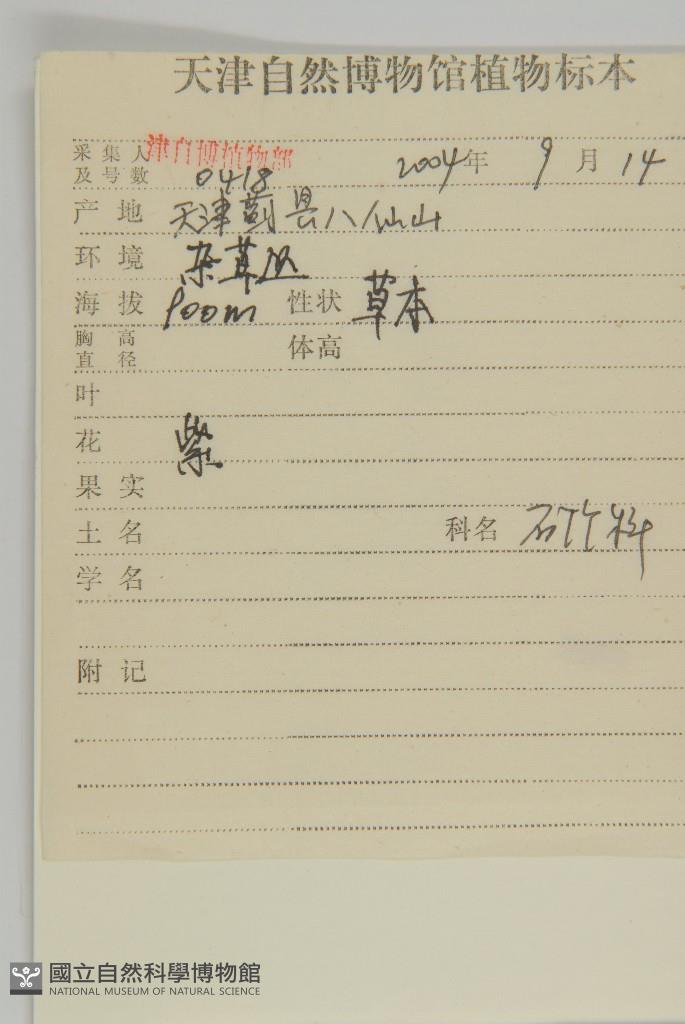 天津自然博物馆植物标本
采集人 津自博植物部
及号数 0418 2004年 9月 14
产地 天津蓟县八仙山
环境 杂草丛
海拔 900m 性状 草本
胸高
直径 体高
叶
花 紫
果实
土名 科名 石竹科
学名
附记
國立自然科學博物館
NATIONAL MUSEUM OF NATURAL SCIENCE